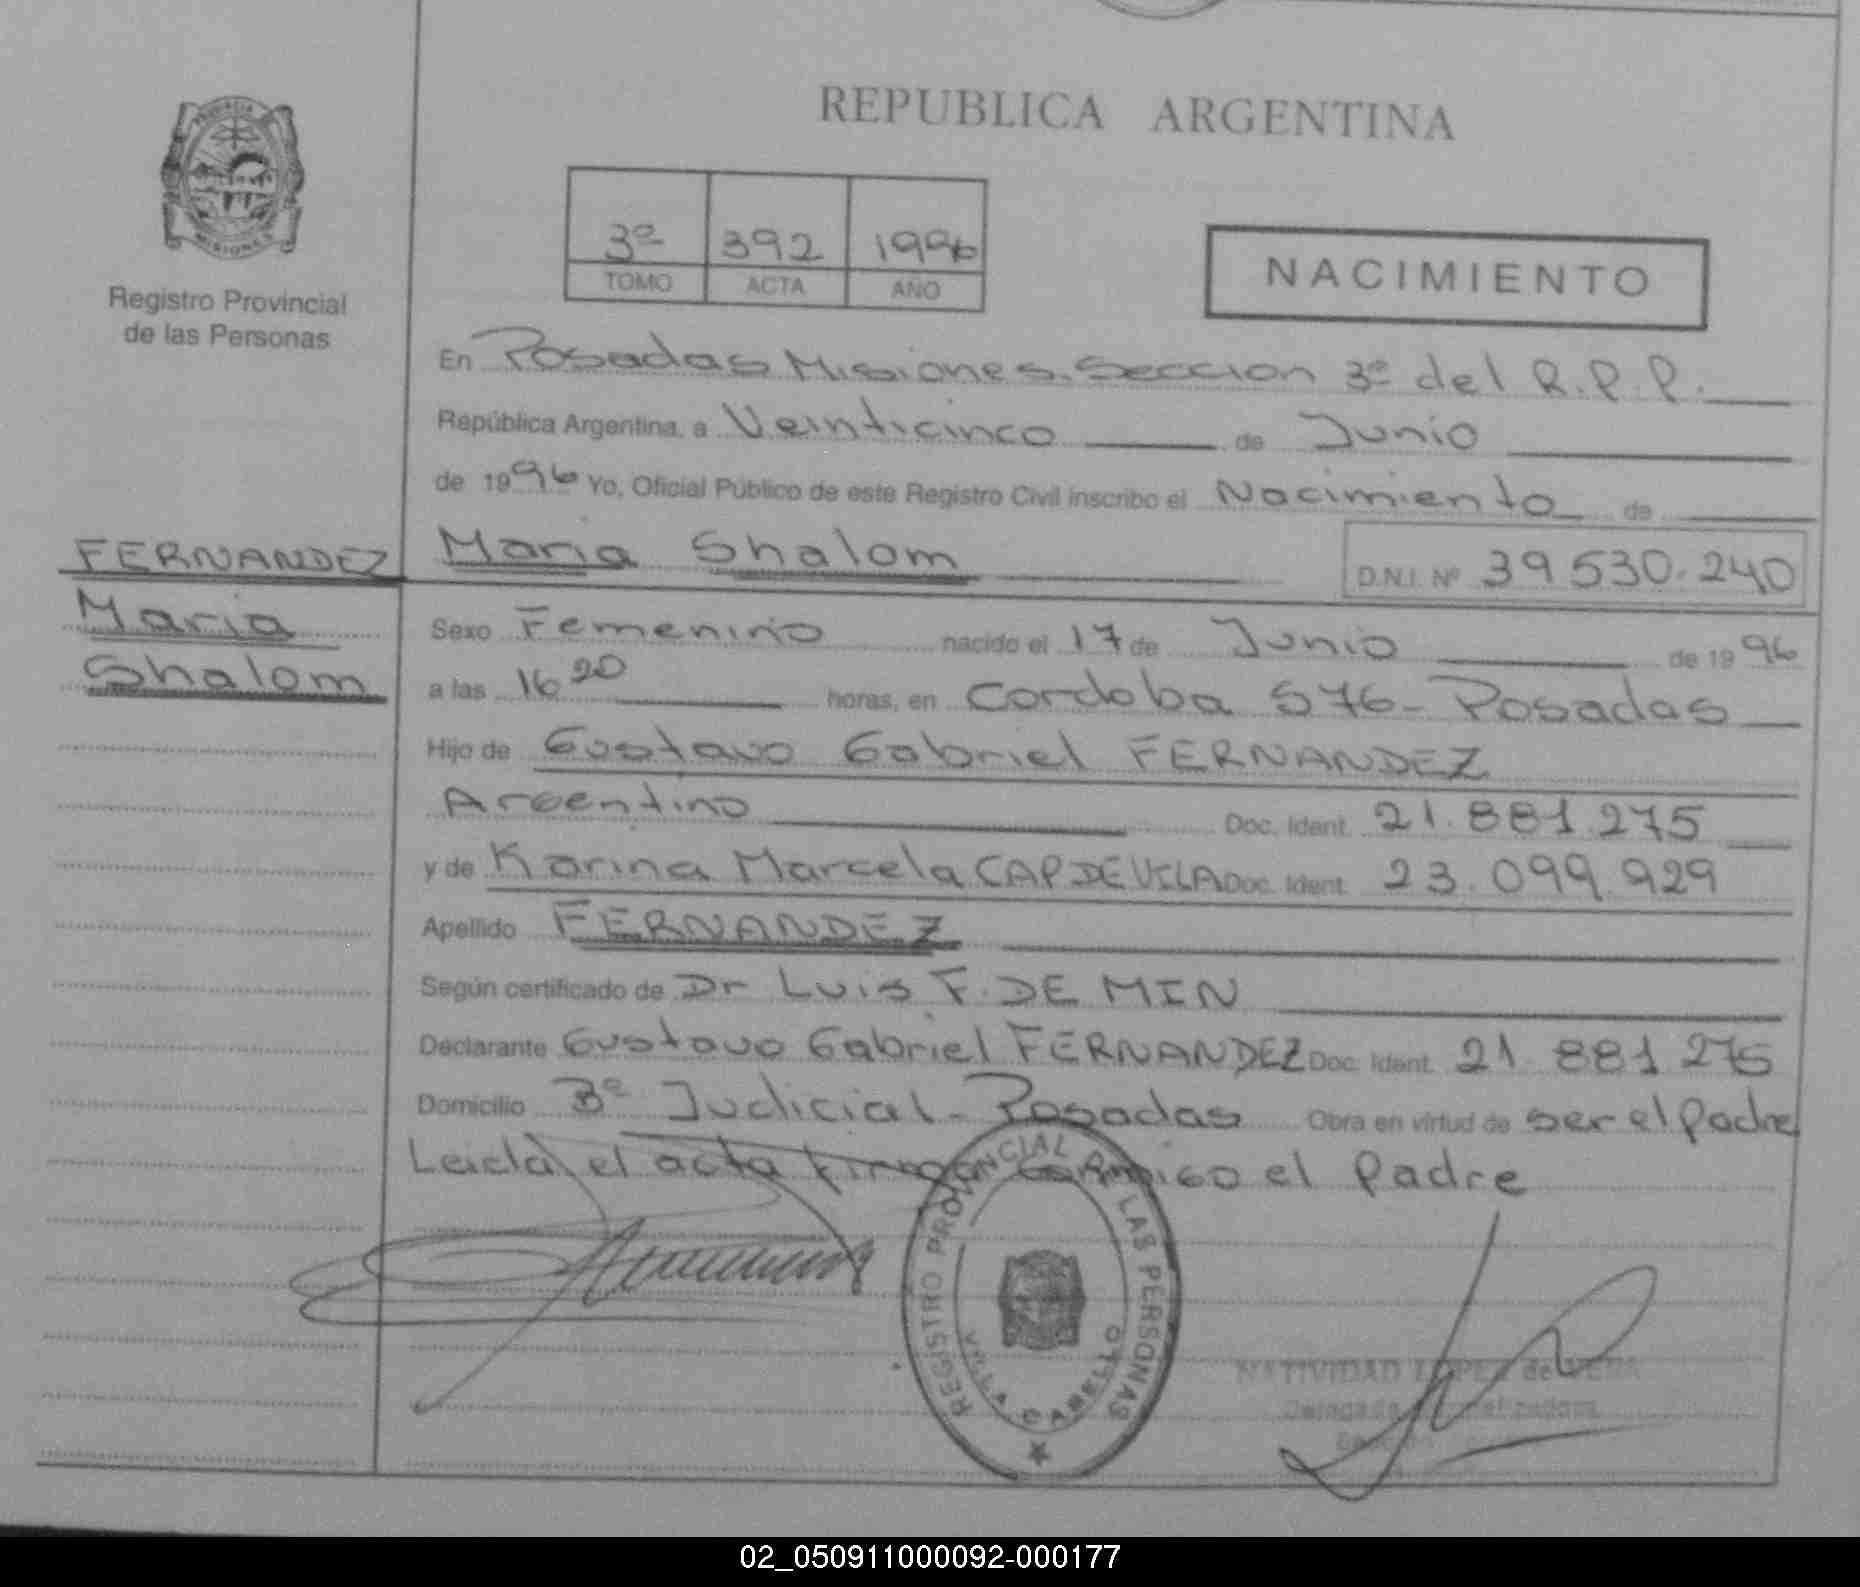 REPUBLICA ARGENTINA
PROVINCIA
MISIONES
Registro Provincial
de las Personas
3º 392 1996
TOMO ACTA AÑO
NACIMIENTO
En Posadas Misiones. Seccion 3º del R.P.P.
República Argentina, a Veinticinco de Junio
de 1996 Yo, Oficial Público de este Registro Civil inscribo el Nacimiento de
FERNANDEZ
Maria
Shalom
Maria Shalom D.N.I. Nº 39530.240
Sexo Femenino nacido el 17 de Junio de 1996
a las 16 20 horas, en Cordoba 576 - Posadas
Hijo de Gustavo Gabriel FERNANDEZ
Argentino Doc. Ident. 21.881.275
y de Karina Marcela CAPDEVILA Doc. Ident. 23.099.929
Apellido FERNANDEZ
Según certificado de Dr Luis F. DE MIN
Declarante Gustavo Gabriel FERNANDEZ Doc. Ident. 21 881 275
Domicilio Bº Judicial - Posadas Obra en virtud de ser el Padre
Leida el acta firma conmigo el Padre
REGISTRO PROVINCIAL DE LAS PERSONAS
VILLA CABELLO
NATIVIDAD LOPEZ de VERA
Delegada
02_050911000092-000177